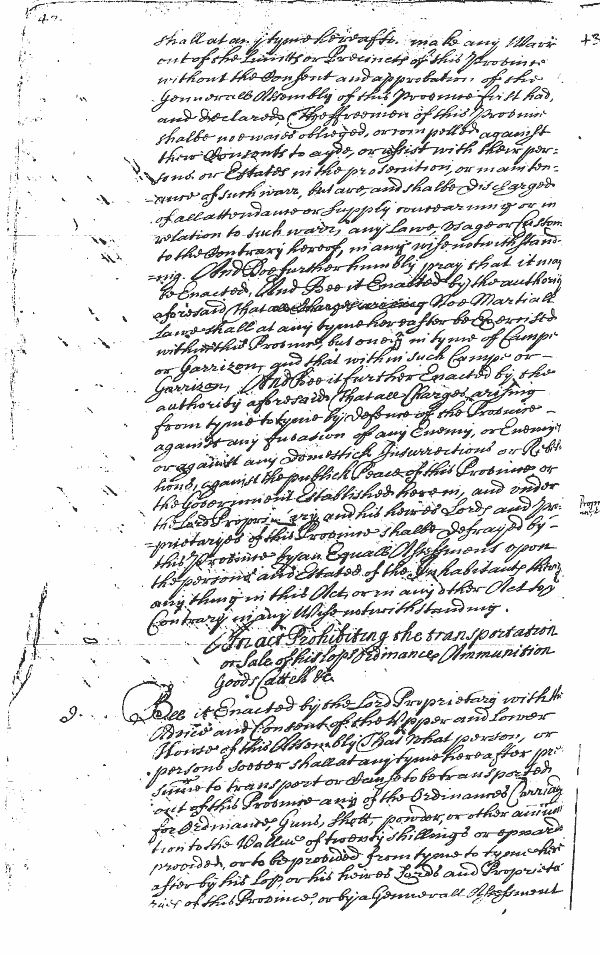 42.
shall at any tyme hereafter make any Warr
out of the Limitts or Precincts of this Province
without the Consent and approbation of the
Gennerall Assembly of this Province first had,
and declared, The ffreemen of this Province
shalbe noe waies obleiged, or compelled against
their Consents to ayde, or assist with their per=
sons or Estates in the prosecution, or mainten=
=ance of such warr, but are, and shalbe discharged
of all attendance or Supply concearning or in
relation to such warr, any Lawe, usage or Custom
to the Contrary hereof, in any wise notwithstand=
=ing. And Doe further humbly pray that it may
be Enacted, And Bee it Enacted by the authority
aforesaid, that all Charges arising Noe Martiall
Lawe shall at any tyme hereafter be Exercised
within this Province, but onely in tyme of Campe
or Garrizon, and that within such Campe or
Garrizon, And Bee it further Enacted by the
authority aforesaid that all Charges arising
from tyme to tyme by defence of the Province
against any Invasion of any Enemy, or Enemyes
or against any Domestick Insurrections or Rebel
lions, against the publick Peace of this Province or
the Government Established herein, and under
the Lord Proprietary and his heires Lords and Pro=
=prietaryes of this Province shalbe defrayed by
this Province by an Equall Assessment upon
the persons and Estates of the Inhabitants thereof
any thing in this Act, or in any other Act to the
Contrary in any Wise notwithstanding.
An act Prohibiting the transportation
or Sale of his lops Ordinance, Ammunition
Goods Cattell &c
9. Bee it Enacted by the Lord Proprietary with the
Advice and Consent of the Upper and Lower
House of this Assembly That what person, or
persons soever shall at any tyme hereafter pre
sume to transport or Cause to be transported
out of this Province any of the Ordinances Carriages
for Ordinance Guns, Shott, powder, or other ammuni
tion to the Vallue of twenty shillings or upward
provided, or to be provided from tyme to tyme here
after by his Lop or his heires Lords and Proprieta
ries of this Province, or by a Gennerall Assessment
43